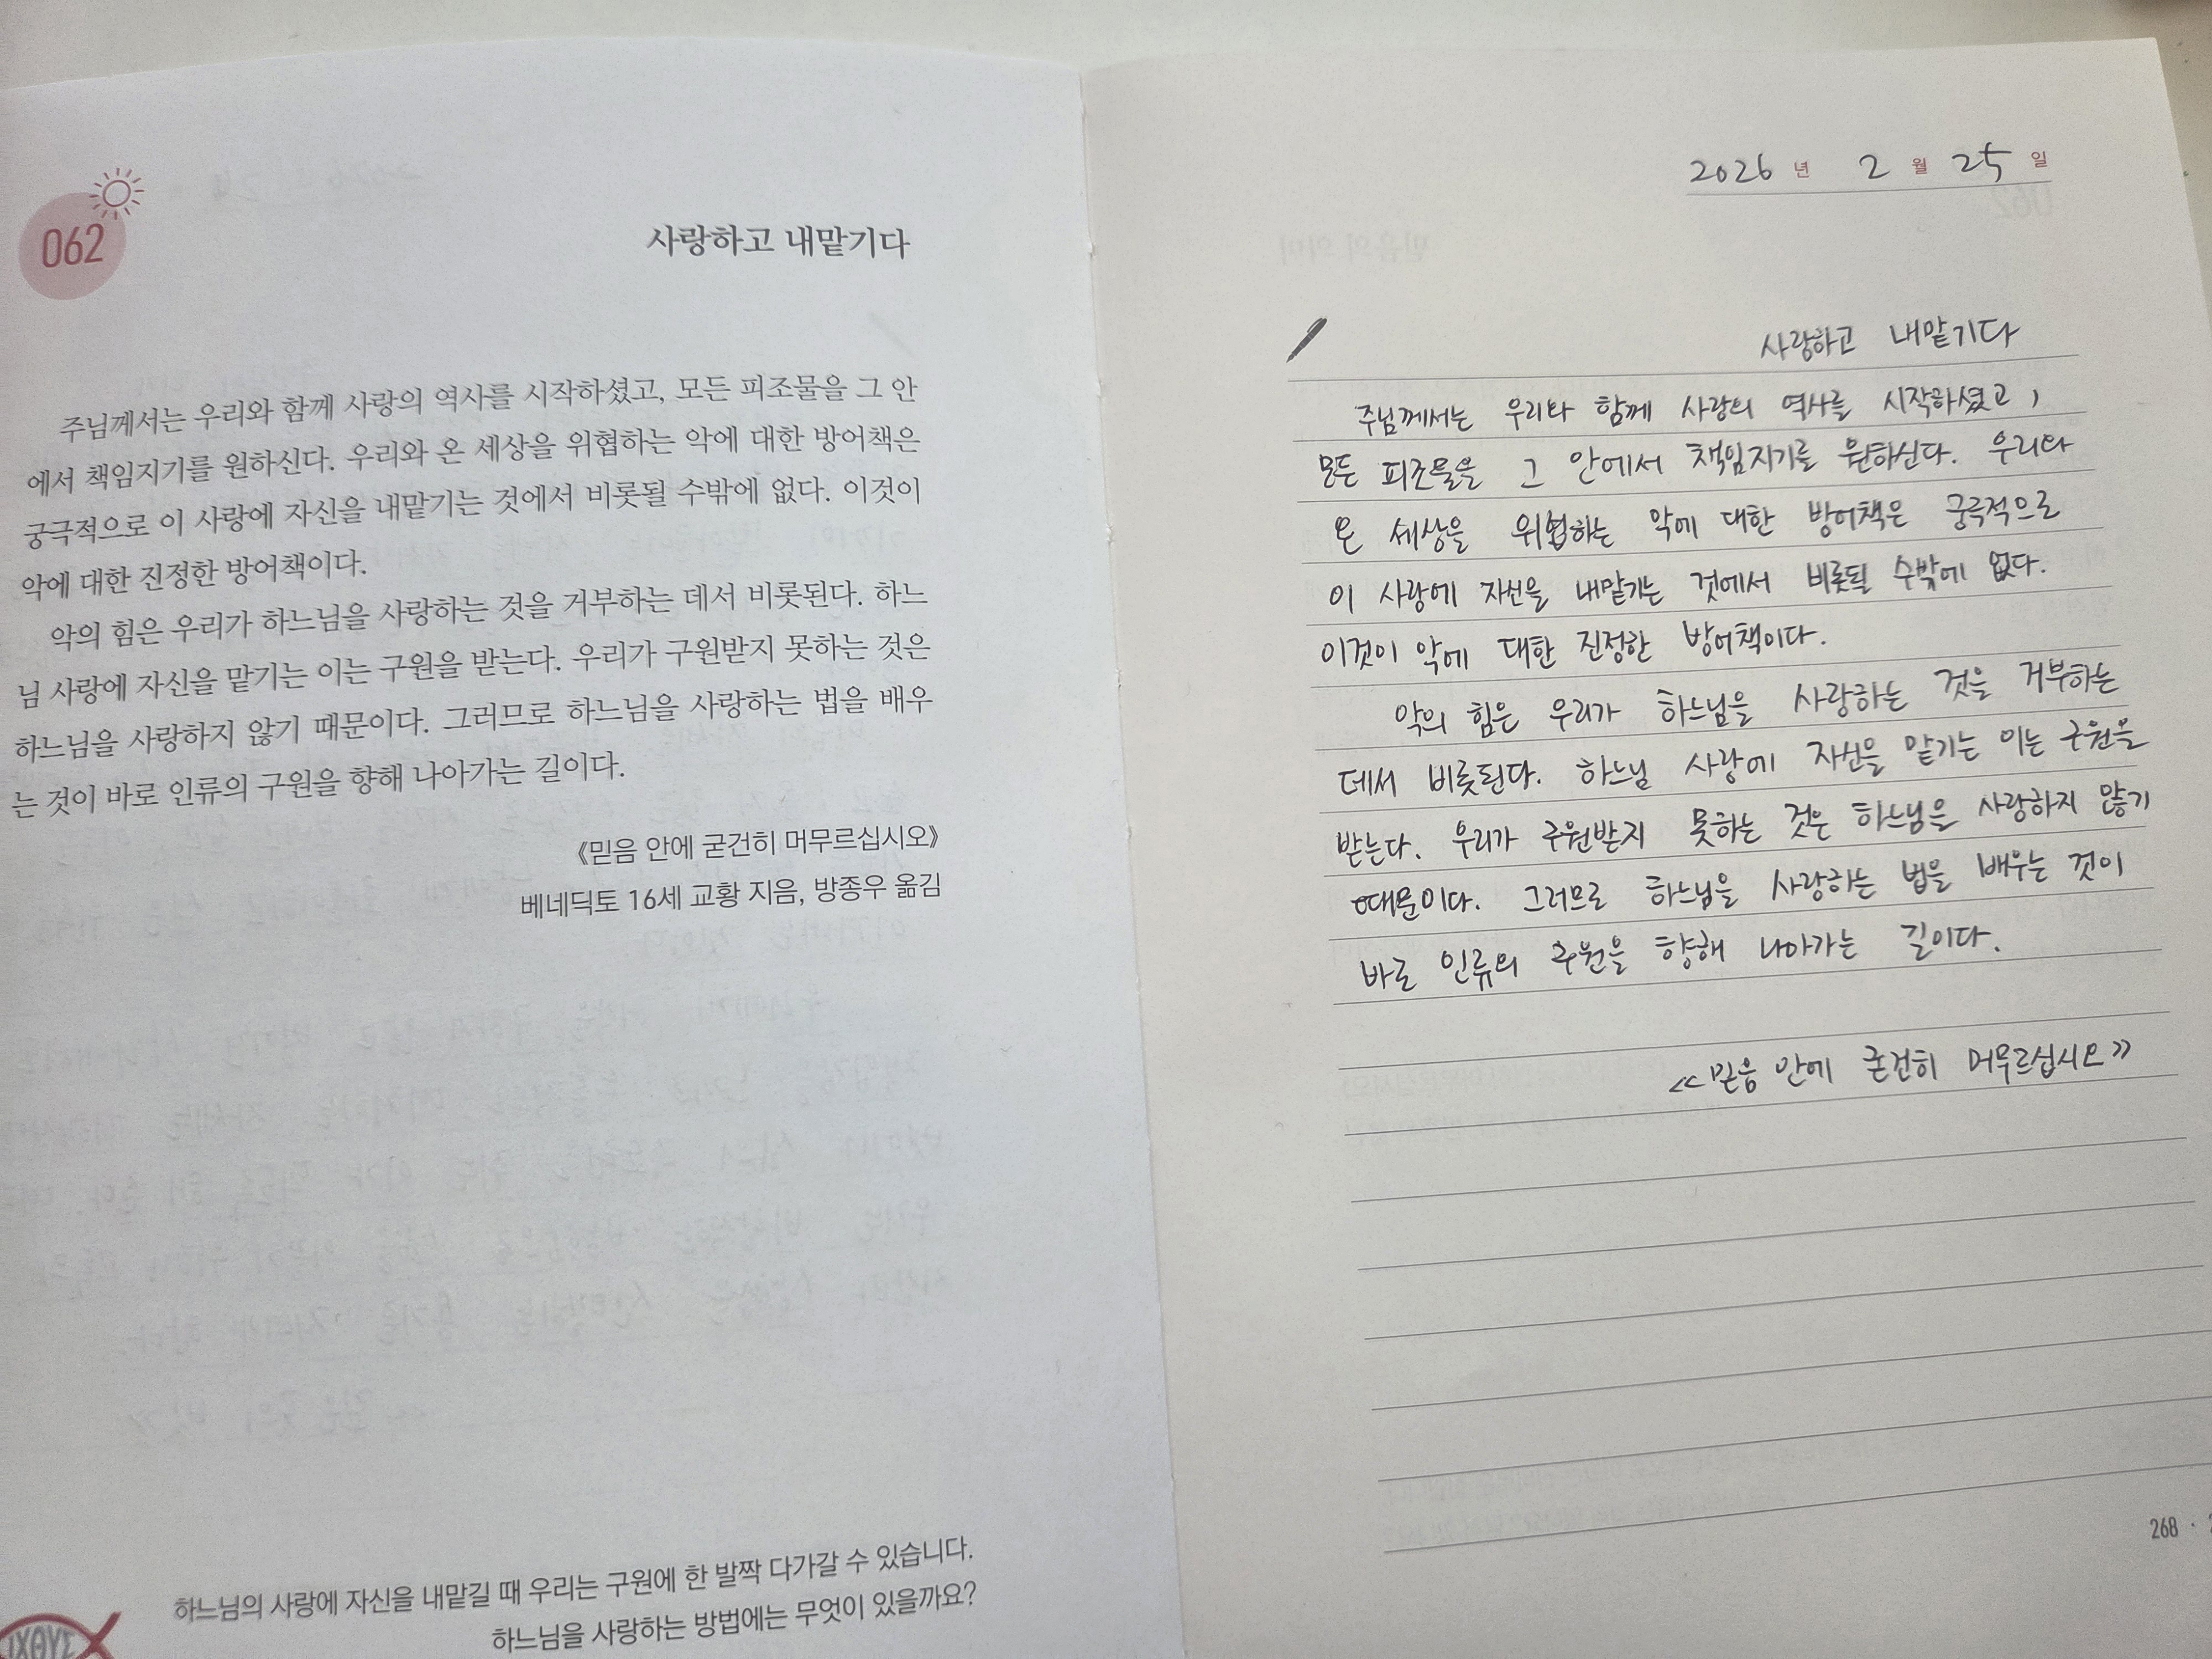 062
사랑하고 내맡기다
주님께서는 우리와 함께 사랑의 역사를 시작하셨고, 모든 피조물을 그 안
에서 책임지기를 원하신다. 우리와 온 세상을 위협하는 악에 대한 방어책은
궁극적으로 이 사랑에 자신을 내맡기는 것에서 비롯될 수밖에 없다. 이것이
악에 대한 진정한 방어책이다.
악의 힘은 우리가 하느님을 사랑하는 것을 거부하는 데서 비롯된다. 하느
님 사랑에 자신을 맡기는 이는 구원을 받는다. 우리가 구원받지 못하는 것은
하느님을 사랑하지 않기 때문이다. 그러므로 하느님을 사랑하는 법을 배우
는 것이 바로 인류의 구원을 향해 나아가는 길이다.
《믿음 안에 굳건히 머무르십시오》
베네딕토 16세 교황 지음, 방종우 옮김
하느님의 사랑에 자신을 내맡길 때 우리는 구원에 한 발짝 다가갈 수 있습니다.
하느님을 사랑하는 방법에는 무엇이 있을까요?
ΙΧΘΥΣ
2026 년 2 월 25 일
사랑하고 내맡기다
주님께서는 우리와 함께 사랑의 역사를 시작하셨고,
모든 피조물을 그 안에서 책임지기를 원하신다. 우리와
온 세상을 위협하는 악에 대한 방어책은 궁극적으로
이 사랑에 자신을 내맡기는 것에서 비롯될 수밖에 없다.
이것이 악에 대한 진정한 방어책이다.
악의 힘은 우리가 하느님을 사랑하는 것을 거부하는
데서 비롯된다. 하느님 사랑에 자신을 맡기는 이는 구원을
받는다. 우리가 구원받지 못하는 것은 하느님을 사랑하지 않기
때문이다. 그러므로 하느님을 사랑하는 법을 배우는 것이
바로 인류의 구원을 향해 나아가는 길이다.
<<믿음 안에 굳건히 머무르십시오>>
268 ·